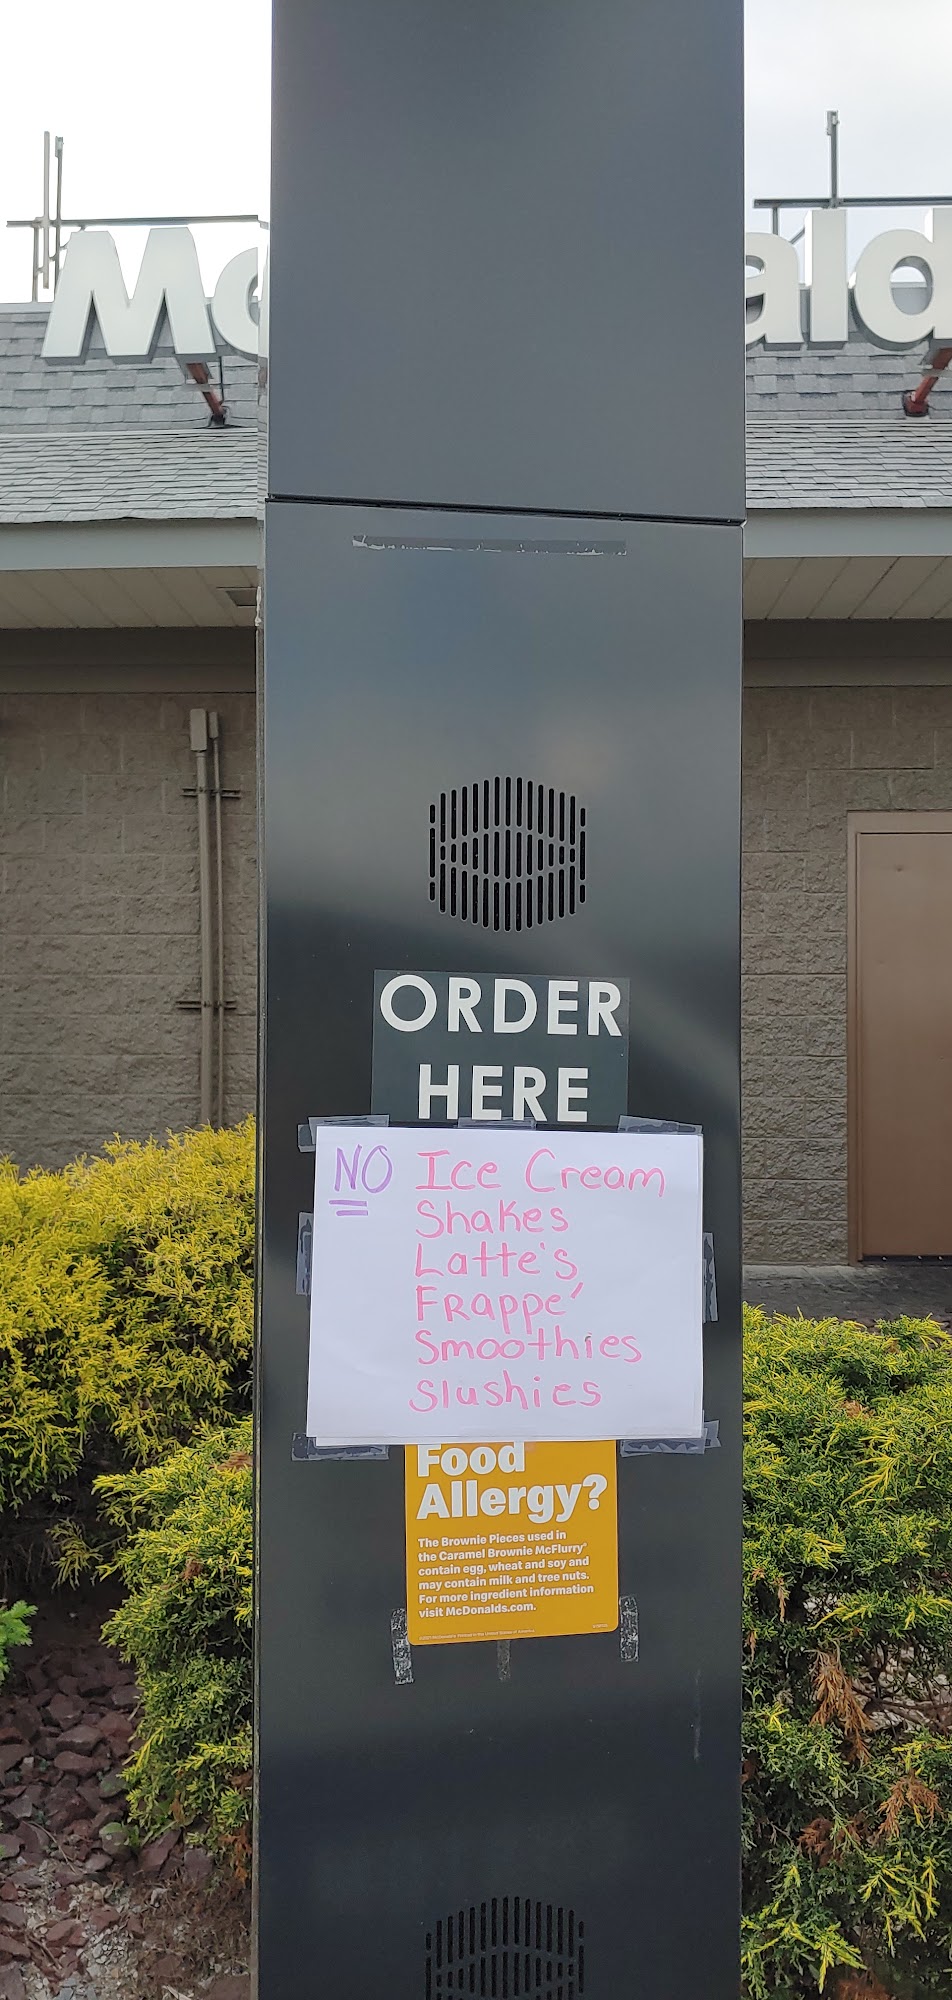 Mc ald
ORDER
HERE
NO Ice Cream
Shakes
Latte's
Frappe'
Smoothies
Slushies
Food
Allergy?
The Brownie Pieces used in
the Caramel Brownie McFlurry®
contain egg, wheat and soy and
may contain milk and tree nuts.
For more ingredient information
visit McDonalds.com.